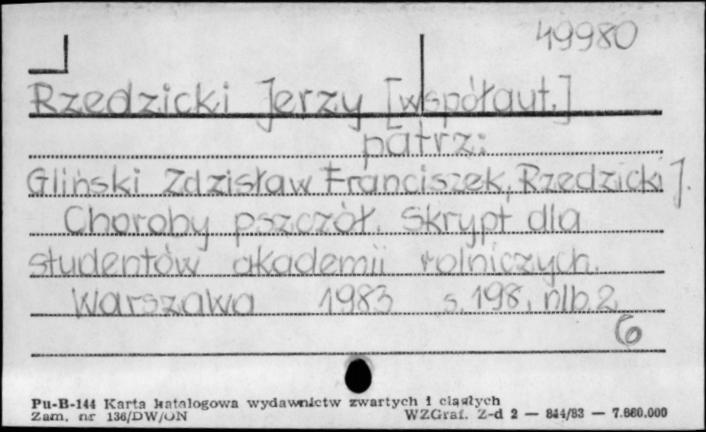 49980
Rzedzicki Jerzy [współaut.]
patrz:
Gliński Zdzisław Franciszek, Rzedzicki J.
Choroby pszczół. Skrypt dla
studentów akademii rolniczych.
Warszawa 1983 s. 198, nlb. 2
6
Pu-B-144 Karta katalogowa wydawnictw zwartych i ciągłych
Zam. nr 136/DW/ON WZGraf. Z-d 2 — 844/83 — 7.660.000